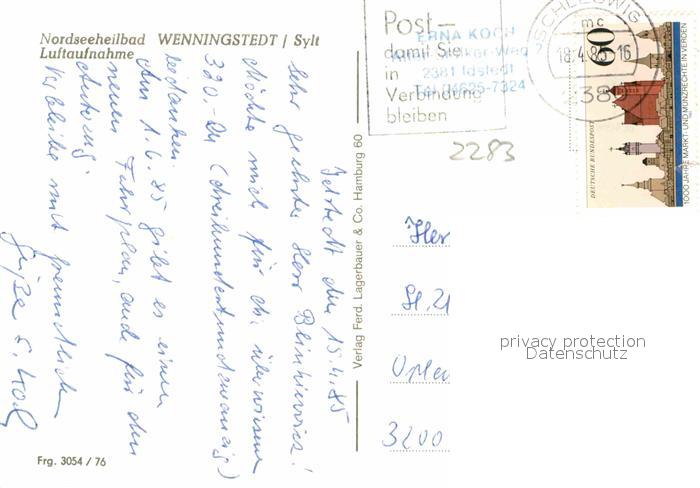 Nordseeheilbad WENNINGSTEDT / Sylt
Luftaufnahme
Post—
damit Sie
in
Verbindung
bleiben
ERNA KOCH
2381 Idstedt
Tel. 04625-7324
SCHLESWIG
mc
18.4.85-16
238
60
DEUTSCHE BUNDESPOST
1000 JAHRE MARKT- UND MÜNZRECHTE IN VERDEN
2283
Idstedt den 15.4.85
Sehr geehrter Herr
Möchte mich für die
320.-DM (dreihundertundzwanzig)
bedanken.
Am 1.6.85 gibt es einen
neuen Fahrplan, auch für den
Autozug
Verbleibe mit freundlichen
Grüße E. Koch
Verlag Ferd. Lagerbauer & Co. Hamburg 60
Her
3200
privacy protection
Datenschutz
Frg. 3054 / 76